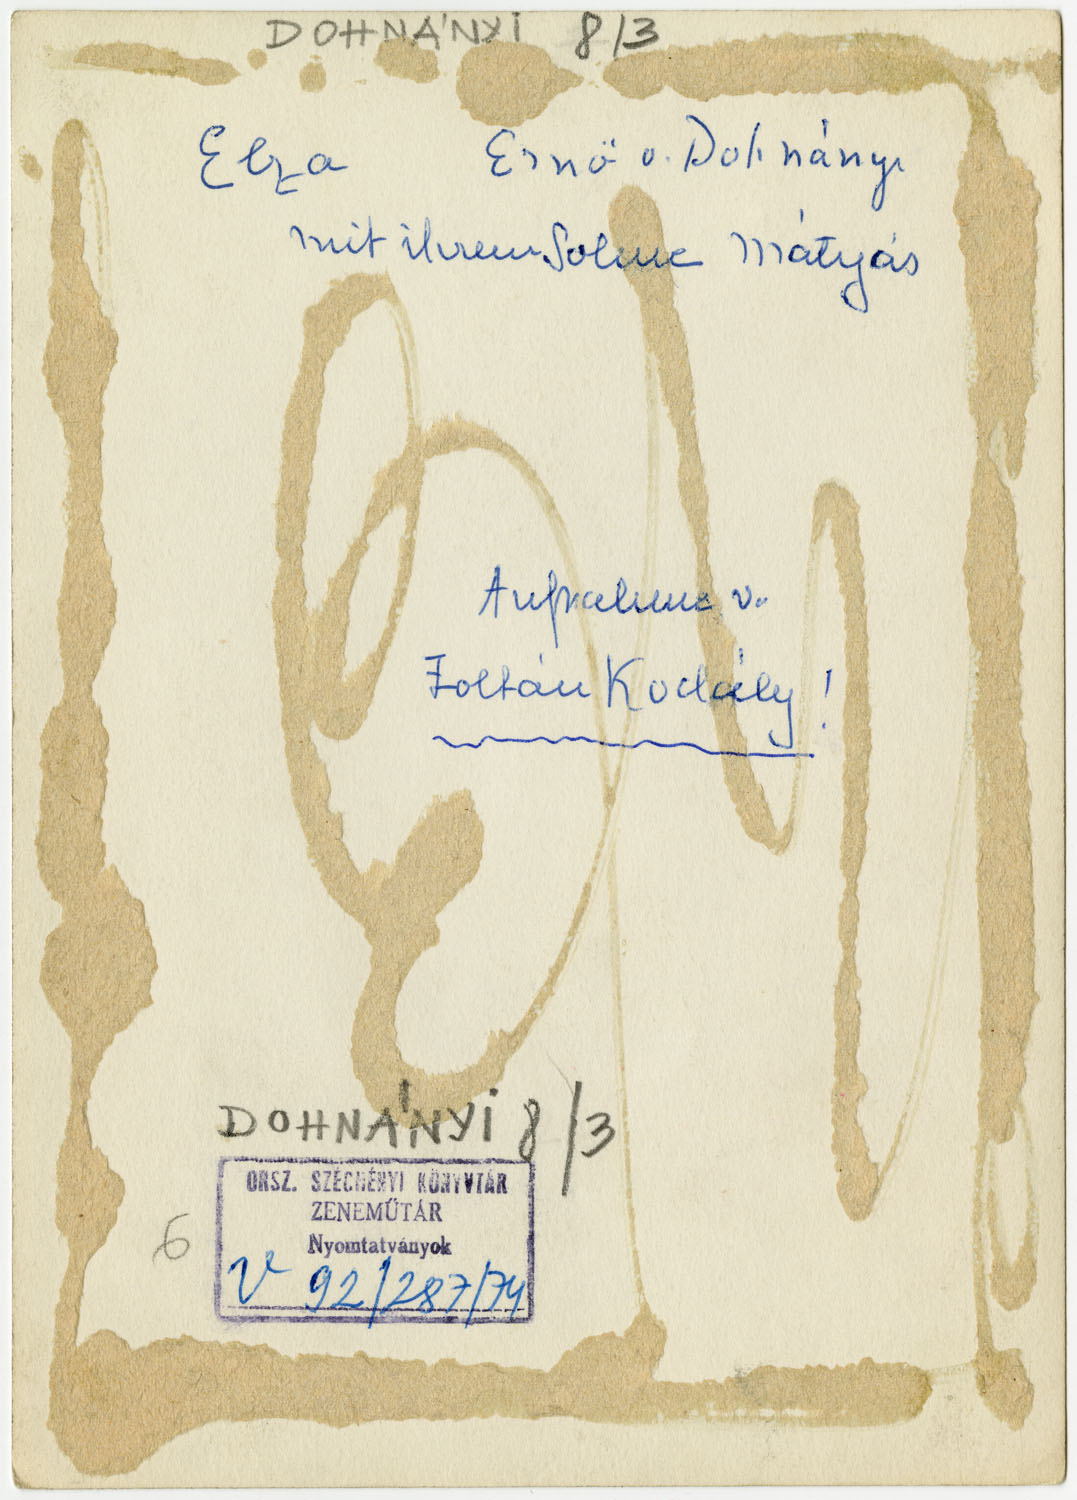 DOHNÁNYI 8/3
Elza Ernö v. Dohnányi
mit ihrem Sohne Mátyás
Aufnahme v.
Zoltán Kodály!
DOHNÁNYI 8/3
ORSZ. SZÉCHÉNYI KÖNYVTÁR
ZENEMŰTÁR
Nyomtatványok
6
V 92/287/74